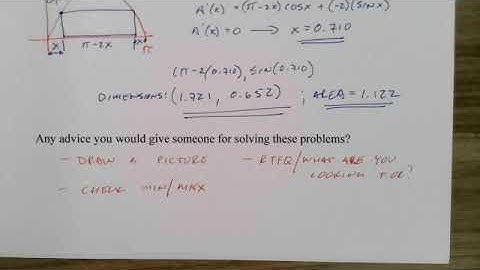 A'(x) = (π-2x) cosx + (-2)(sinx)
A'(x) = 0 → x = 0.710
x π-2x π
(π-2(0.710), sin(0.710)
DIMENSIONS: (1.721, 0.652) ; AREA = 1.122
Any advice you would give someone for solving these problems?
- DRAW A PICTURE - RTFQ/WHAT ARE YOU LOOKING FOR?
- CHECK MIN/MAX